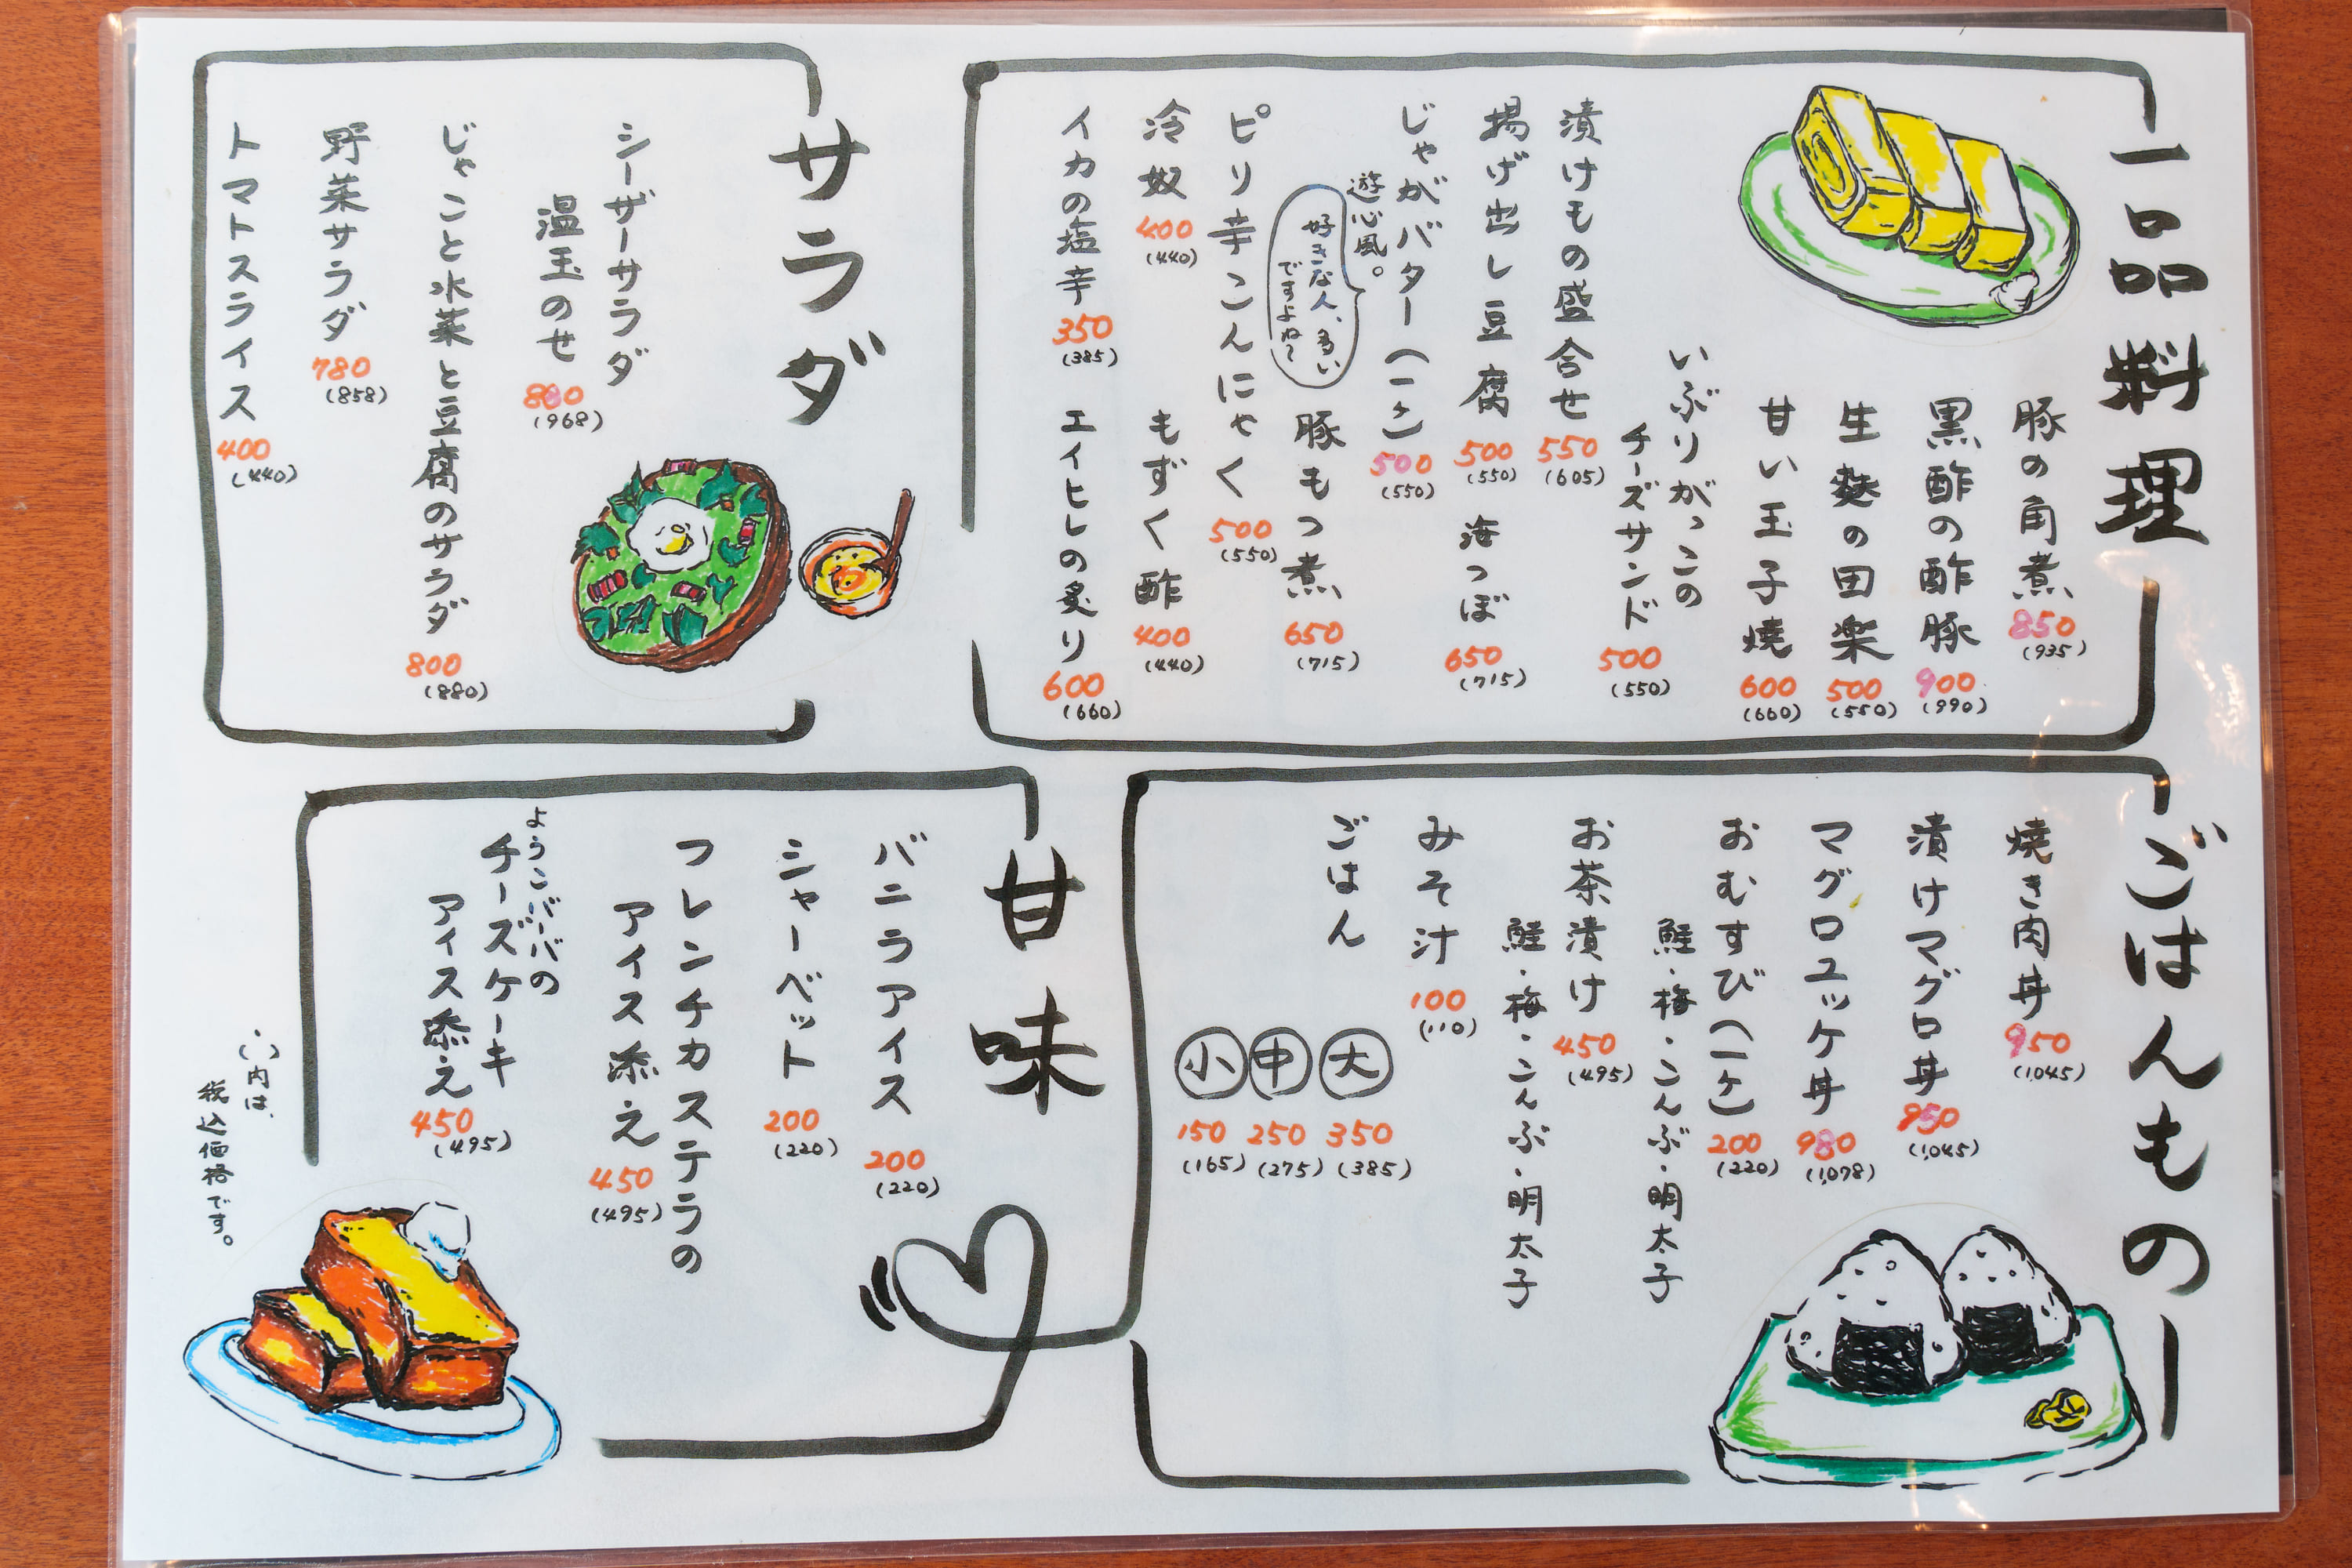 一品料理
豚の角煮
850
(935)
黒酢の酢豚
900
(990)
生麩の田楽
500
(550)
甘い玉子焼
600
(660)
いぶりがっこの
チーズサンド
500
(550)
漬けもの盛合せ
550
(605)
揚げ出し豆腐
500
(550)
海つぼ
650
(715)
じゃがバター(一ケ)
遊心風。
500
(550)
好きな人、多い
ですよね〜
豚もつ煮
650
(715)
ピリ辛こんにゃく
500
(550)
冷奴
400
(440)
もずく酢
400
(440)
イカの塩辛
350
(385)
エイヒレの炙り
600
(660)
サラダ
シーザーサラダ
温玉のせ
880
(968)
じゃこと水菜と豆腐のサラダ
800
(880)
野菜サラダ
780
(858)
トマトスライス
400
(440)
ごはんものー
焼き肉丼
950
(1,045)
漬けマグロ丼
950
(1,045)
マグロユッケ丼
980
(1,078)
おむすび(一ケ)
200
(220)
鮭・梅・こんぶ・明太子
お茶漬け
450
(495)
鮭・梅・こんぶ・明太子
みそ汁
100
(110)
ごはん
大
350
(385)
中
250
(275)
小
150
(165)
甘味
バニラアイス
200
(220)
シャーベット
200
(220)
フレンチカステラの
アイス添え
450
(495)
ようこバーバの
チーズケーキ
アイス添え
450
(495)
・( )内は、
税込価格です。